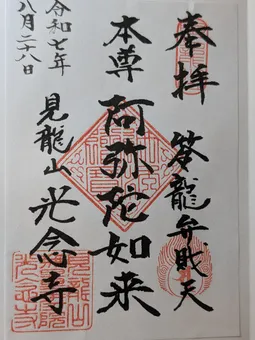 奉拝
答龍弁戝天
本尊 阿弥陀如来
見龍山 光念寺
令和七年
八月二十八日